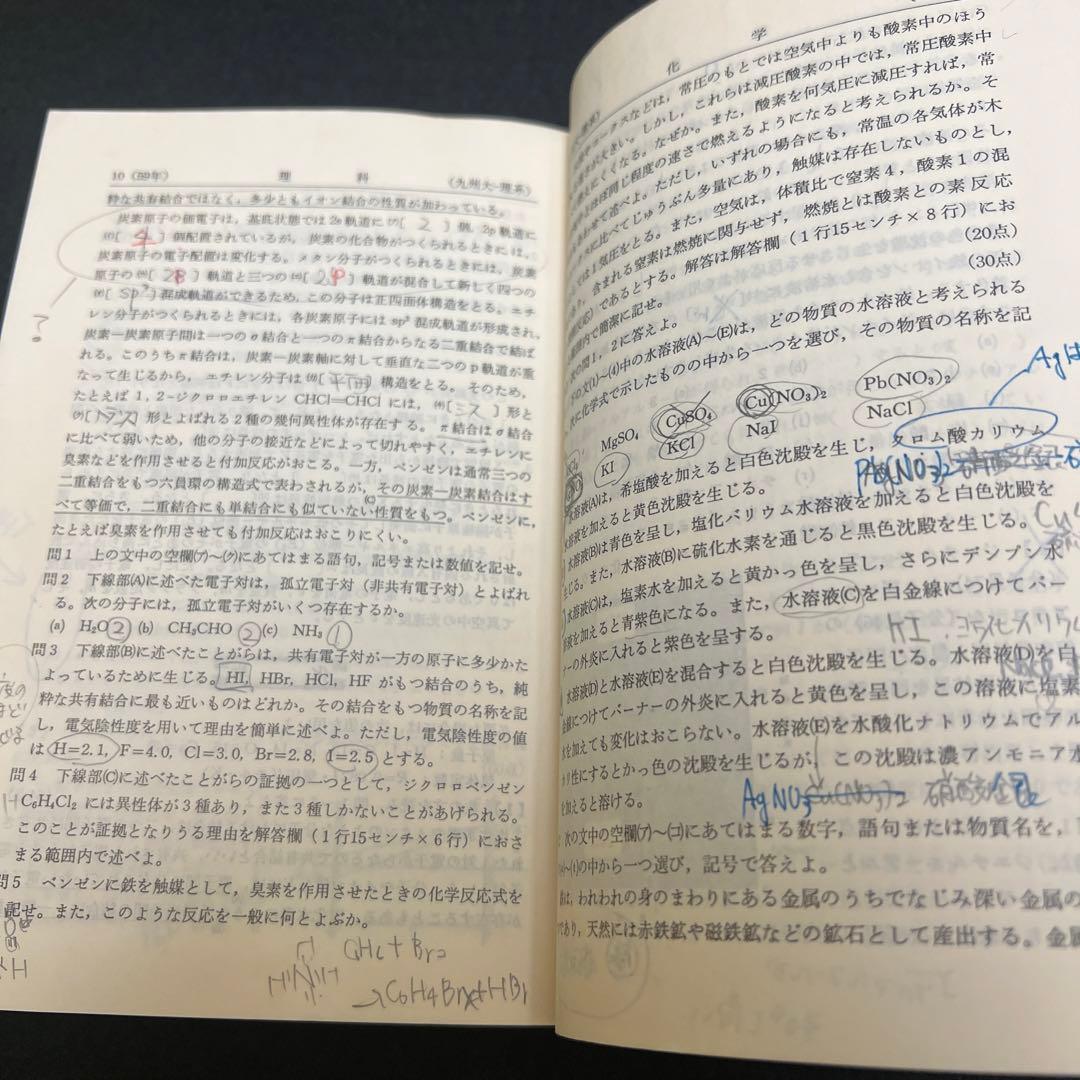 10 (59年) 理 科 (九州大-理系)
粋な共有結合ではなく，多少ともイオン結合の性質が加わっている。
炭素原子の価電子は，基底状態では2s軌道に(ア)[ 2 ]個，2p軌道に
(イ)[ 4 ]個配置されているが，炭素の化合物がつくられるときには，
炭素原子の電子配置は変化する。メタン分子がつくられるときには，炭素
原子の(ウ)[ 2s ]軌道と三つの(エ)[ 2p ]軌道が混合して新しく四つの
(オ)[ sp³ ]混成軌道ができるため，この分子は正四面体構造をとる。エチ
レン分子がつくられるときには，各炭素原子には sp² 混成軌道が形成され，
炭素—炭素原子間は一つのσ結合と一つのπ結合からなる二重結合で結ば
れる。このうちπ結合は，炭素—炭素軸に対して垂直な二つのp軌道が重
なって生じるから，エチレン分子は(カ)[ 平面 ]構造をとる。そのため，
たとえば1，2-ジクロロエチレン CHCl=CHCl には，(キ)[ シス ]形と
(ク)[トランス]形とよばれる2種の幾何異性体が存在する。π結合はσ結合
に比べて弱いため，他の分子の接近などによって切れやすく，エチレンに
臭素などを作用させると付加反応がおこる。一方，ベンゼンは通常三つの
二重結合をもつ六員環の構造式で表わされるが，(C)その炭素—炭素結合はす
べて等価で，二重結合にも単結合にも似ていない性質をもつ。ベンゼンに，
たとえば臭素を作用させても付加反応はおこりにくい。
問1 上の文中の空欄(ア)～(ク)にあてはまる語句，記号または数値を記せ。
問2 下線部(A)に述べた電子対は，孤立電子対（非共有電子対）とよばれ
る。次の分子には，孤立電子対がいくつ存在するか。
(a) H₂O ② (b) CH₃CHO ② (c) NH₃ ①
問3 下線部(B)に述べたことがらは，共有電子対が一方の原子に多少かた
よっているために生じる。HI，HBr，HCl，HF がもつ結合のうち，純
粋な共有結合に最も近いものはどれか。その結合をもつ物質の名称を記
し，電気陰性度を用いて理由を簡単に述べよ。ただし，電気陰性度の値
は H=2.1，F=4.0，Cl=3.0，Br=2.8，I=2.5 とする。
問4 下線部(C)に述べたことがらの証拠の一つとして，ジクロロベンゼン
C₆H₄Cl₂ には異性体が3種あり，また3種しかないことがあげられる。
このことが証拠となりうる理由を解答欄（1行15センチ×6行）におさ
まる範囲内で述べよ。
問5 ベンゼンに鉄を触媒として，臭素を作用させたときの化学反応式を
記せ。また，このような反応を一般に何とよぶか。
化 学
などは，常圧のもとでは空気中よりも酸素中のほう
が大きい。しかし，これらは減圧酸素の中では，常圧酸素中
えにくくなる。なぜか。また，酸素を何気圧に減圧すれば，常
ほぼ同じ程度の速さで燃えるようになると考えられるか。そ
わせて述べよ。ただし，いずれの場合にも，常温の各気体が木
に比べてじゅうぶん多量にあり，触媒は存在しないものとし，
は1気圧をとる。また，空気は，体積比で窒素4，酸素1の混
，含まれる窒素は燃焼に関与せず，燃焼とは酸素との素反応
であるとする。解答は解答欄（1行15センチ×8行）にお
範囲内で簡潔に記せ。 (20点)
次の問1，2に答えよ。 (30点)
下の文(1)～(4)中の水溶液(A)～(E)は，どの物質の水溶液と考えられる
次に化学式で示したものの中から一つを選び，その物質の名称を記
MgSO₄ CuSO₄ Cu(NO₃)₂ Pb(NO₃)₂
KI KCl NaI NaCl
水溶液(A)は，希塩酸を加えると白色沈殿を生じ，クロム酸カリウム
Pb(NO₃)₂
水溶液を加えると黄色沈殿を生じる。
水溶液(B)は青色を呈し，塩化バリウム水溶液を加えると白色沈殿を
生じる。また，水溶液(B)に硫化水素を通じると黒色沈殿を生じる。
水溶液(C)は，塩素水を加えると黄かっ色を呈し，さらにデンプン水
溶液を加えると青紫色になる。また，水溶液(C)を白金線につけてバー
ナーの外炎に入れると紫色を呈する。
KI ヨウ化カリウム
水溶液(D)と水溶液(E)を混合すると白色沈殿を生じる。水溶液(D)を白
金線につけてバーナーの外炎に入れると黄色を呈し，この溶液に塩素
水を加えても変化はおこらない。水溶液(E)を水酸化ナトリウムでアル
カリ性にするとかっ色の沈殿を生じるが，この沈殿は濃アンモニア水
を加えると溶ける。
AgNO₃ Cu(NO₃)₂ 硝酸銀
次の文中の空欄(ア)～(コ)にあてはまる数字，語句または物質名を，
の中から一つ選び，記号で答えよ。
は，われわれの身のまわりにある金属のうちでなじみ深い金属の
であり，天然には赤鉄鉱や磁鉄鉱などの鉱石として産出する。金属